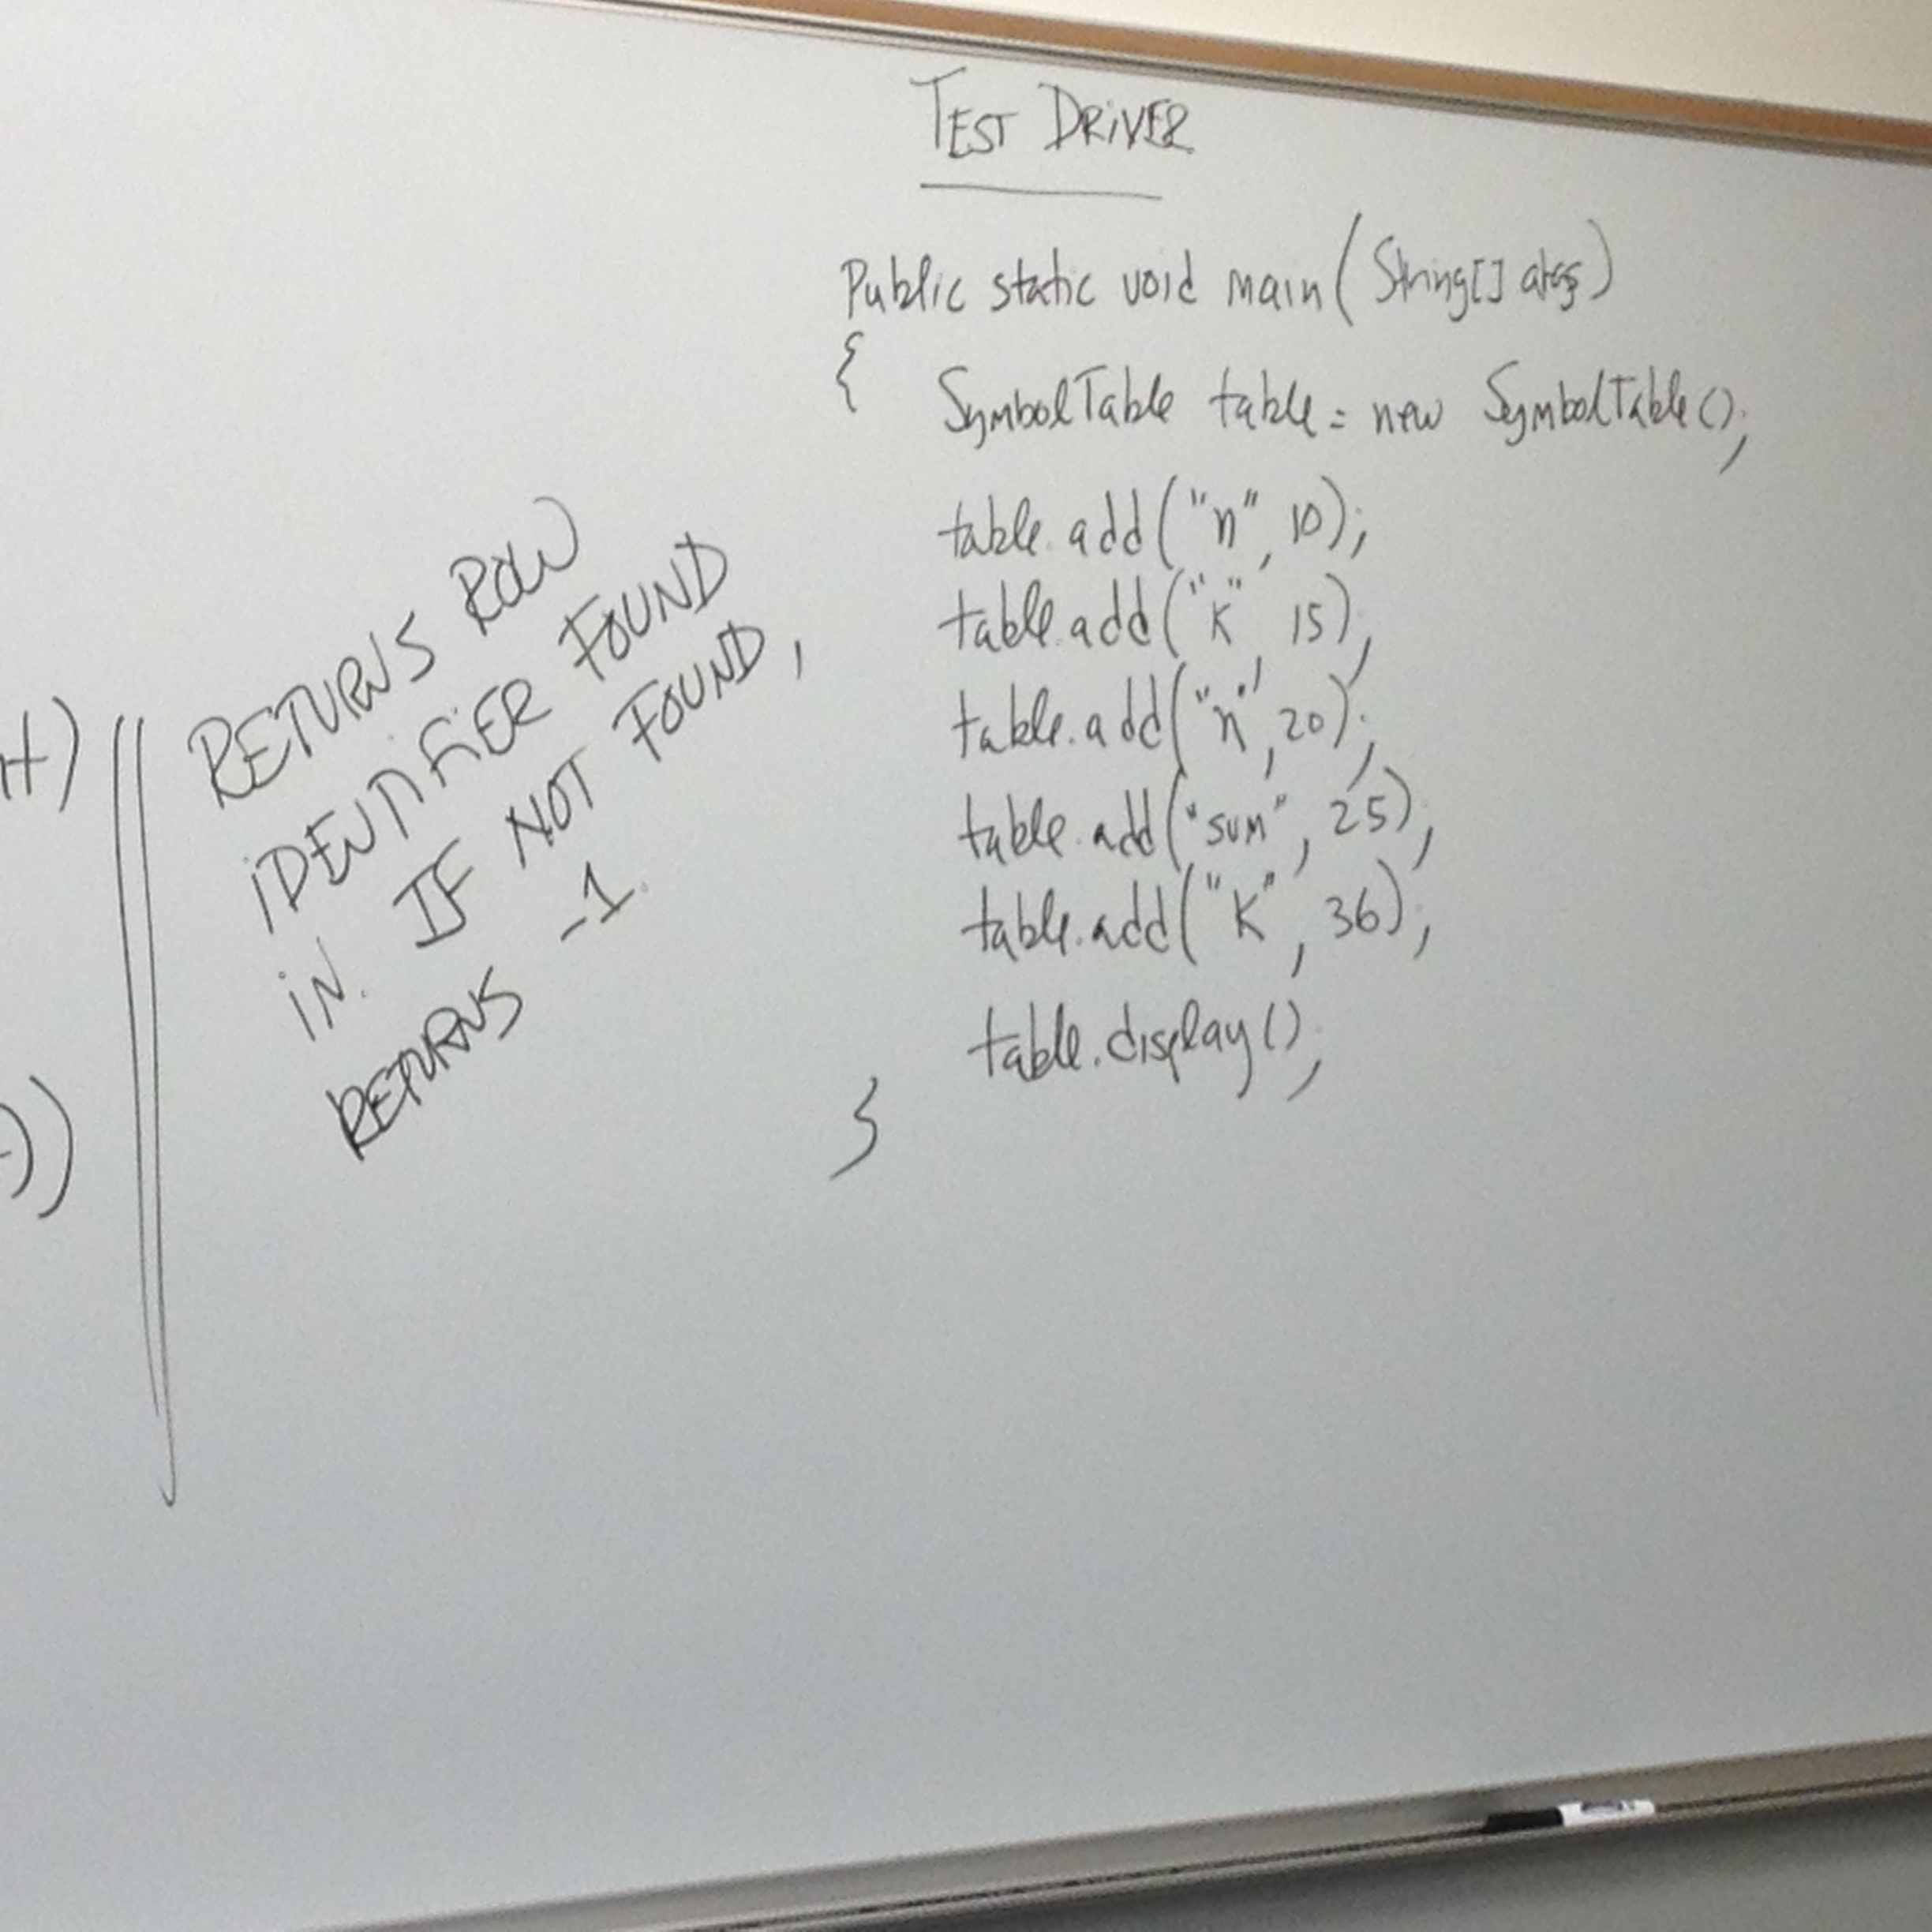 TEST DRIVER
Public static void main(String[] args)
{ SymbolTable table = new SymbolTable();
table.add("n", 10);
table.add("K", 15);
table.add("n", 20);
table.add("sum", 25);
table.add("K", 36);
table.display();
}
RETURNS ROW
IDENTIFIER FOUND
IN. IF NOT FOUND,
RETURNS -1.